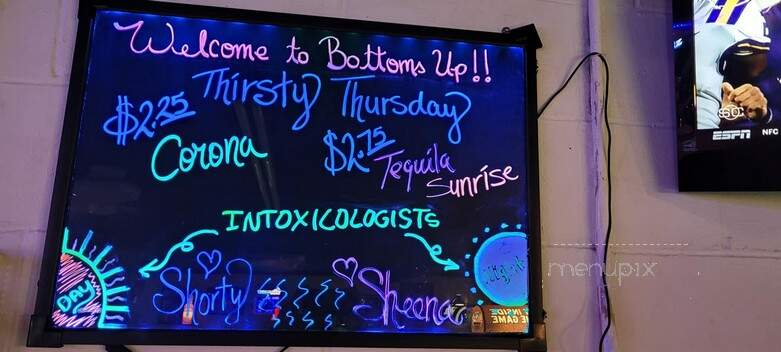 Welcome to Bottoms Up!!
Thirsty Thursday
$2.25
Corona
$2.75
Tequila
Sunrise
INTOXICOLOGISTS
DAY
Night
Shorty
Sheena
INSIDE
THE GAME
50
ESPN
NFC
menupix